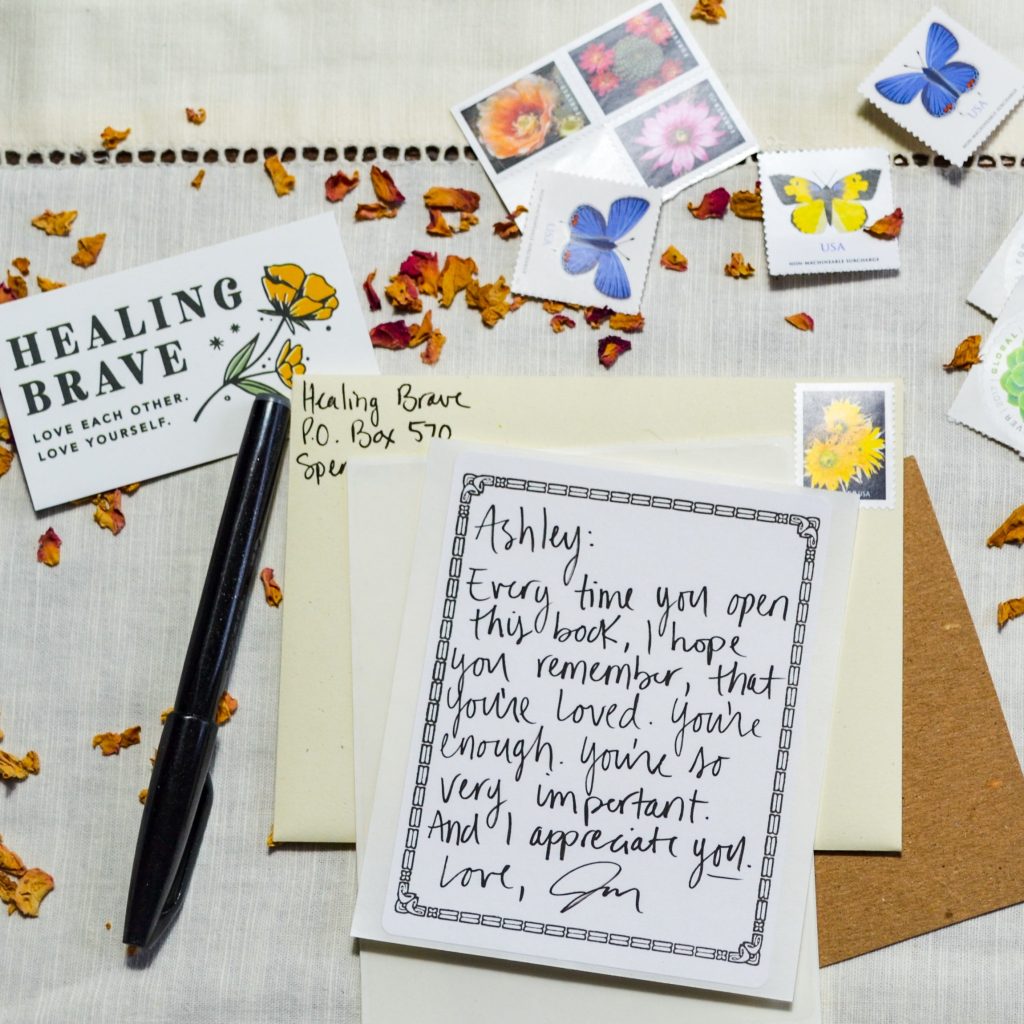 HEALING
BRAVE
LOVE EACH OTHER.
LOVE YOURSELF.
USA
USA
NON-MACHINEABLE SURCHARGE
USA
NON-MACHINEABLE SURCHARGE
GLOBAL
Healing Brave
P.O. Box 570
USA
Ashley:
Every time you open
this book, I hope
you remember, that
you're loved. You're
enough. You're so
very important.
And I appreciate you.
Love,